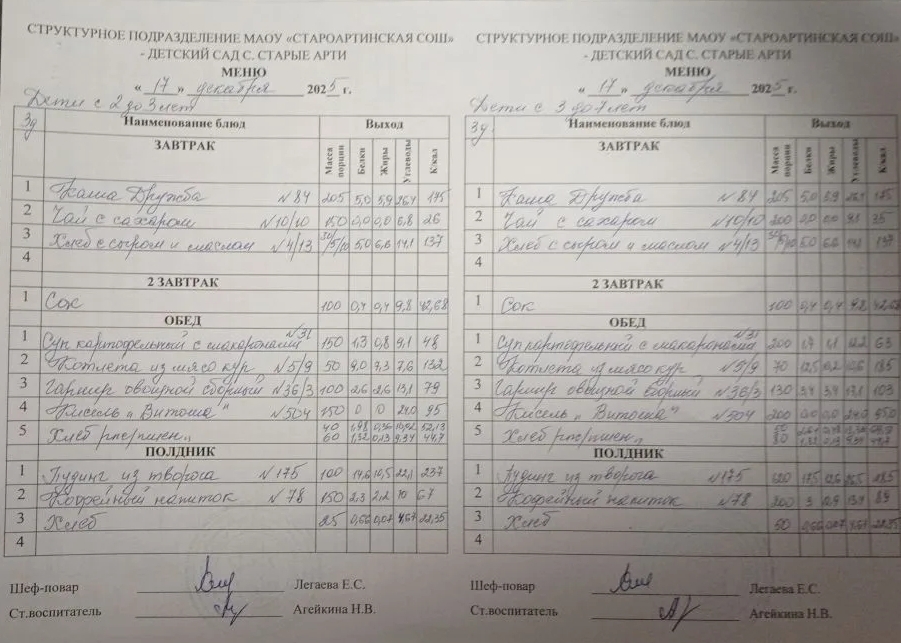 СТРУКТУРНОЕ ПОДРАЗДЕЛЕНИЕ МАОУ «СТАРОАРТИНСКАЯ СОШ»
- ДЕТСКИЙ САД С. СТАРЫЕ АРТИ
МЕНЮ
« 17 » декабря 2025 г.
Дети с 2 до 3 лет
Наименование блюд Выход
ЗАВТРАК Масса порции Белки Жиры Углеводы К/кал
1 Каша Дружба №84 205 5,0 5,9 26,4 175
2 Чай с сахаром №10/10 150 0,0 0,0 6,8 26
3 Хлеб с сыром и маслом №4/13 30/5/10 5,0 6,6 14,1 137
4
2 ЗАВТРАК
1 Сок 100 0,4 0,4 9,8 42,68
ОБЕД
1 Суп картофельный с макаронами №31 150 1,3 0,8 9,1 48
2 Котлета из мясо кур №5/9 50 9,0 9,3 7,6 132
3 Гарнир овощной сборный №36/3 100 2,6 2,6 13,1 79
4 Кисель „Витоша" №504 150 0 0 24,0 95
5 Хлеб 40 60 52,13 44,7
ПОЛДНИК
1 Пудинг из творога №175 100 14,6 10,5 22,1 237
2 Кофейный напиток №78 150 2,3 2,2 10 67
3 Хлеб 25 0,66 0,07 4,67 22,35
4
Шеф-повар Легаева Е.С.
Ст.воспитатель Агейкина Н.В.
СТРУКТУРНОЕ ПОДРАЗДЕЛЕНИЕ МАОУ «СТАРОАРТИНСКАЯ СОШ»
- ДЕТСКИЙ САД С. СТАРЫЕ АРТИ
МЕНЮ
« 17 » декабря 2025 г.
Дети с 3 до 7 лет
Наименование блюд Выход
ЗАВТРАК Масса порции Белки Жиры Углеводы К/кал
1 Каша Дружба №84 205 5,0 5,9 26,4
2 Чай с сахаром №10/10 200 0,0 0,0 9,1 35
3 Хлеб с сыром и маслом №4/13 5,0 6,6 14,1 137
4
2 ЗАВТРАК
1 Сок 100 0,4 0,4 9,8 42,68
ОБЕД
1 Суп картофельный с макаронами №31 200 1,7 1,1 12,2 63
2 Котлета из мясо кур №5/9 70 12,5 185
3 Гарнир овощной сборный №36/3 130 3,4 3,4 17,1 103
4 Кисель „Витоша" №504 200 0,0 0,0 24,0 95,0
5 Хлеб 80
ПОЛДНИК
1 Пудинг из творога №175 120 17,5 12,6 26,5
2 Кофейный напиток №78 200 3 2,9 13,4 89
3 Хлеб 50 0,66 0,07 22,35
4
Шеф-повар Легаева Е.С.
Ст.воспитатель Агейкина Н.В.